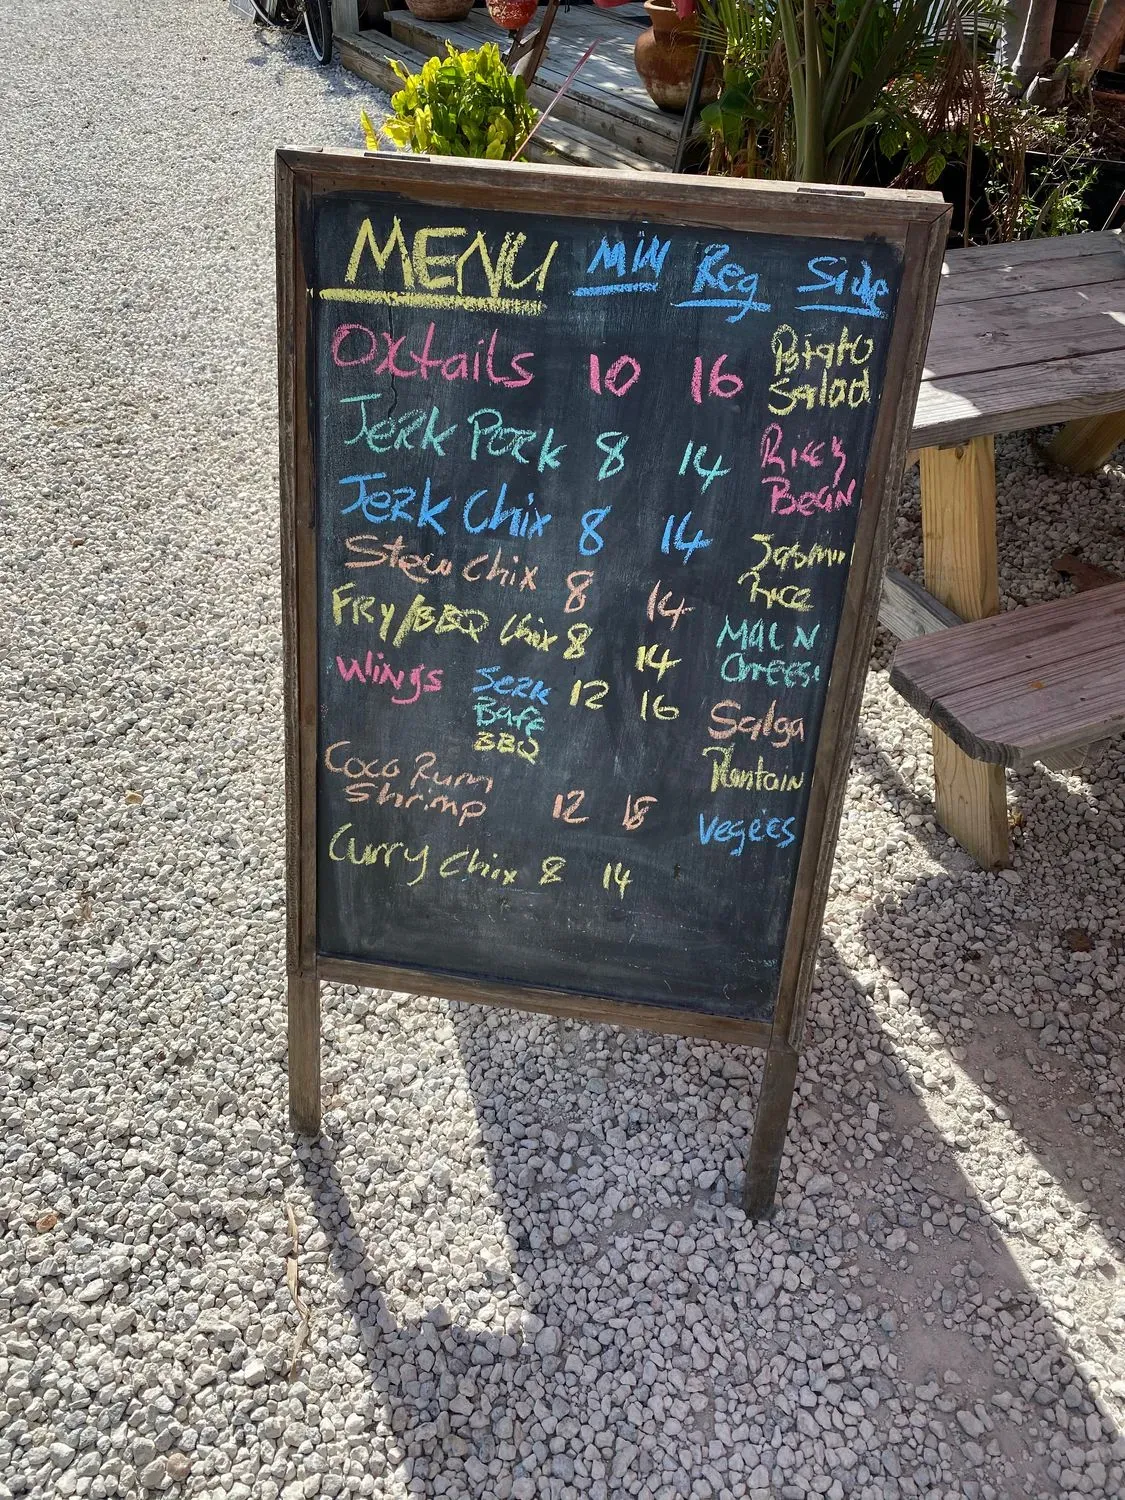 MENU Min Reg Side
Oxtails 10 16
Potato
Salad
Jerk Pork 8 14
Ricey
Bean
Jerk Chix 8 14
Jasmin
Rice
Stew Chix 8 14
Fry/BBQ Chix 8 14
Mac N
Cheese
Wings Jerk 12 16
Buff
BBQ
Salga
Plantain
Coco Rum
Shrimp 12 18
Vegees
Curry Chix 8 14